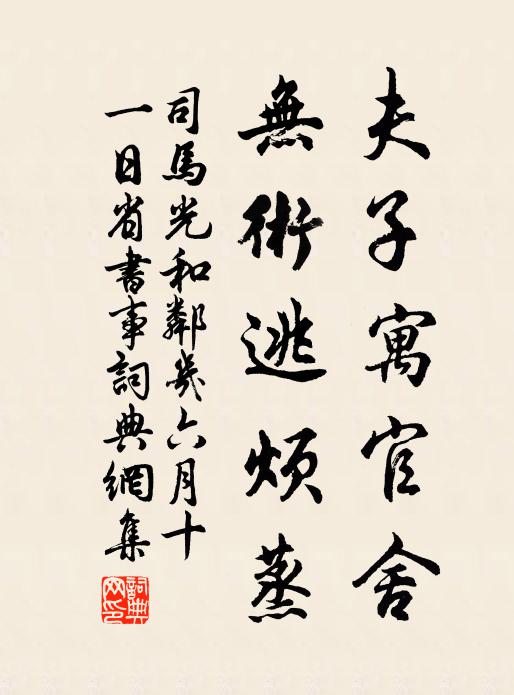 夫子寓官舍
無術逃煩蒸
司馬光和鄰幾六月十
一日省書事詞典網集
詞典
网印